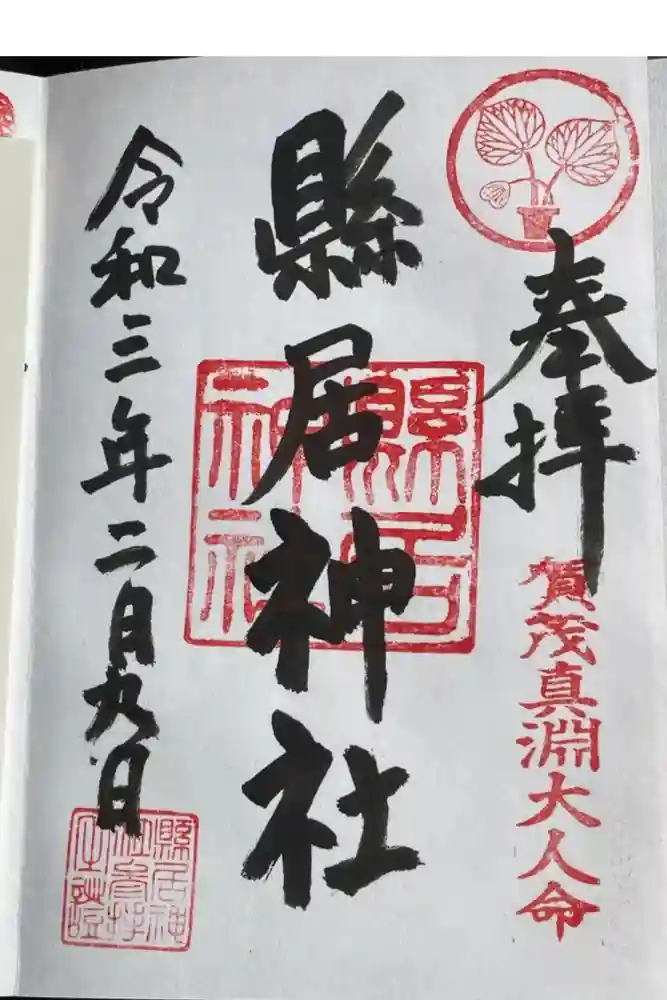 奉拝
賀茂真淵大人命
縣居神社
縣居神社
令和三年二月九日
縣居神
社参拝
之證